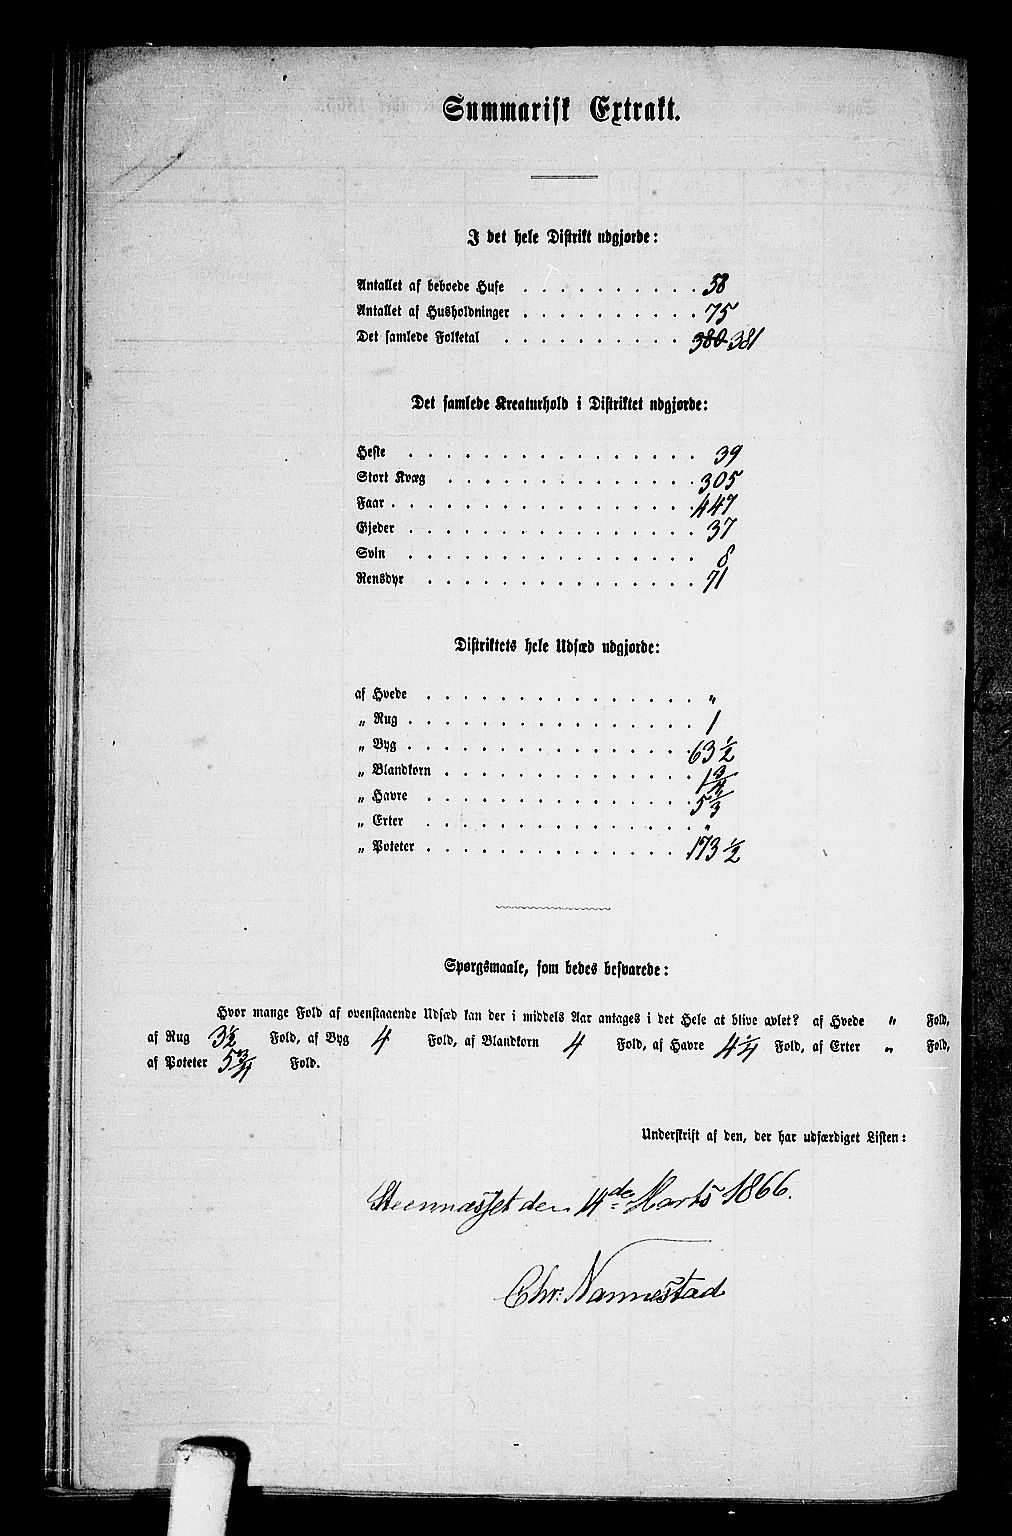 Summarisk Extrakt.
I det hele Distrikt udgjorde:
Antallet af beboede Huse . . . . . . . . . . 58
Antallet af Husholdninger . . . . . . . . . . 75
Det samlede Folketal . . . . . . . . . . . 380 381
Det samlede Kreaturhold i Distriktet udgjorde:
Heste . . . . . . . . . . . . . . . 39
Stort Kvæg . . . . . . . . . . . . . 305
Faar . . . . . . . . . . . . . . . . 447
Gjeder . . . . . . . . . . . . . . . 37
Svin . . . . . . . . . . . . . . . 8
Rensdyr . . . . . . . . . . . . . . 71
Distriktets hele Udsæd udgjorde:
af Hvede . . . . . . . . . . . . . . "
„ Rug . . . . . . . . . . . . . . . 1
„ Byg . . . . . . . . . . . . . . . 63 1/2
„ Blandkorn . . . . . . . . . . . . . 1 3/4
„ Havre . . . . . . . . . . . . . . 5 2/3
„ Erter . . . . . . . . . . . . . . "
„ Poteter . . . . . . . . . . . . . . 173 1/2
Spørgsmaale, som bedes besvarede:
Hvor mange Fold af ovenstaaende Udsæd kan der i middels Aar antages i det Hele at blive avlet? af Hvede " Fold,
af Rug 3 1/2 Fold, af Byg 4 Fold, af Blandkorn 4 Fold, af Havre 4 1/4 Fold, af Erter " Fold,
af Poteter 5 3/4 Fold.
Underskrift af den, der har udfærdiget Listen:
den 14de Marts 1866.
Chr. Nannestad